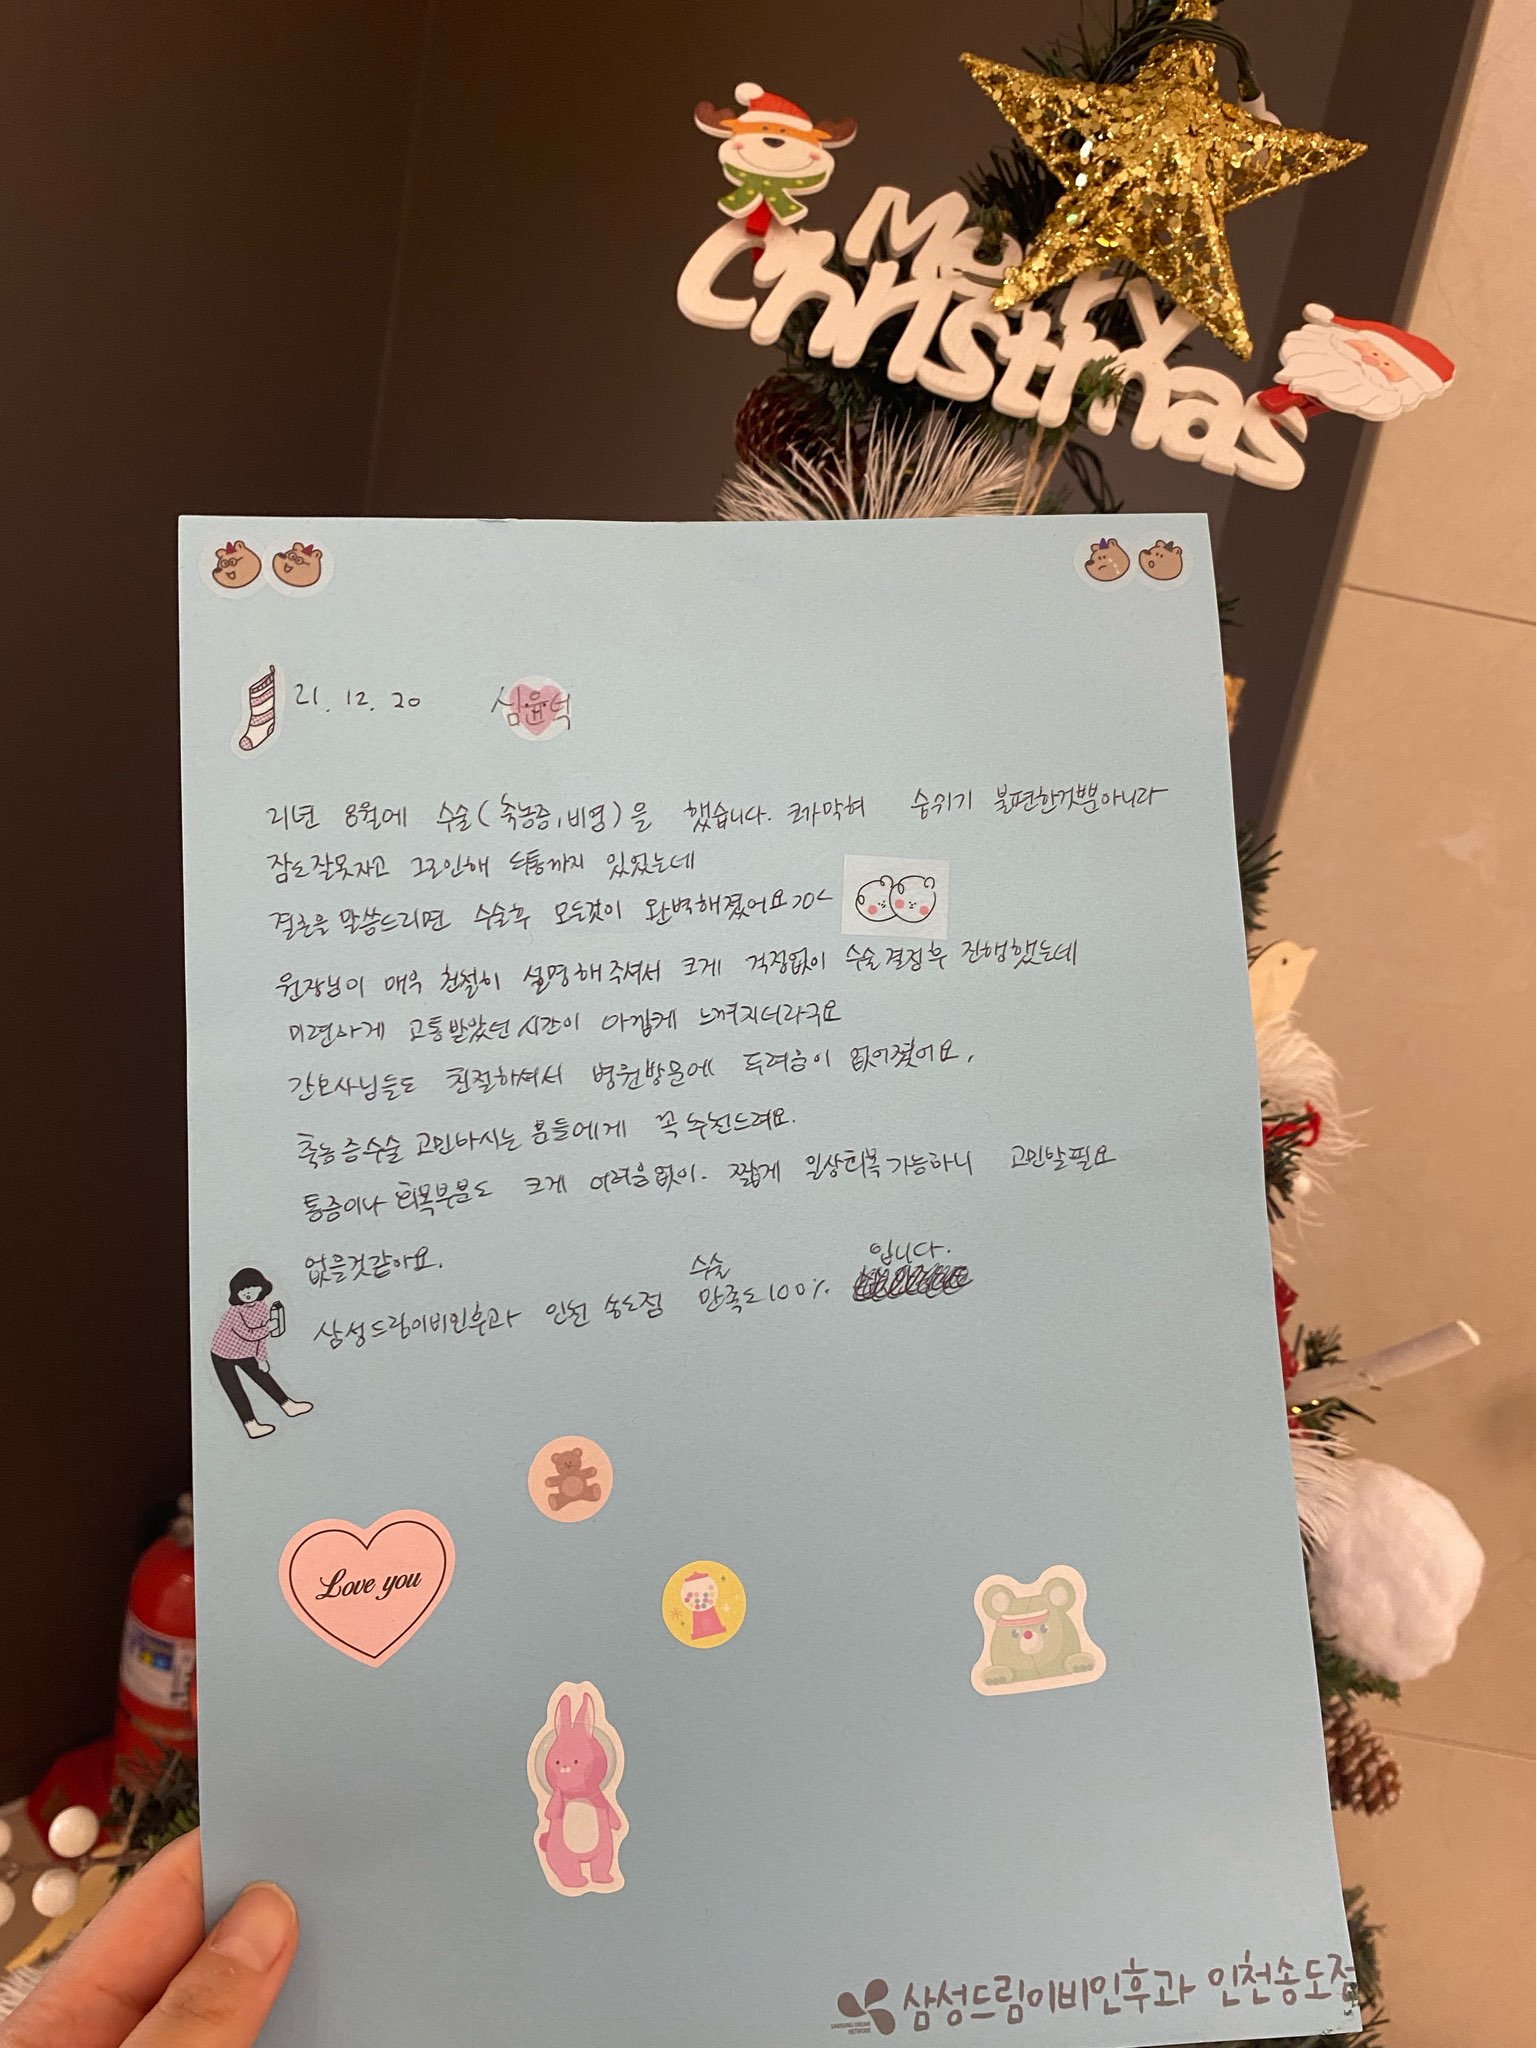 Merry
Christmas
21. 12. 20
21년 8월에 수술(축농증, 비염)을 했습니다. 코가막혀 숨쉬기 불편한것뿐아니라
잠도잘못자고 그로인해 두통까지 있었는데
결론을 말씀드리면 수술후 모든것이 완벽해졌어요>o<
원장님이 매우 친절히 설명해주셔서 크게 걱정없이 수술결정후 진행했는데
미련하게 고통받았던 시간이 아깝게 느껴지더라구요
간호사님들도 친절하셔서 병원방문에 두려움이 없어졌어요.
축농증수술 고민하시는 분들에게 꼭 추천드려요.
통증이나 회복부분도 크게 어려움없이. 짧게 일상회복가능하니 고민할필요
없을것같아요.
삼성드림이비인후과 인천 송도점 수술 만족도100% 입니다.
Love you
삼성드림이비인후과 인천송도점
SAMSUNG DREAM
NETWORK